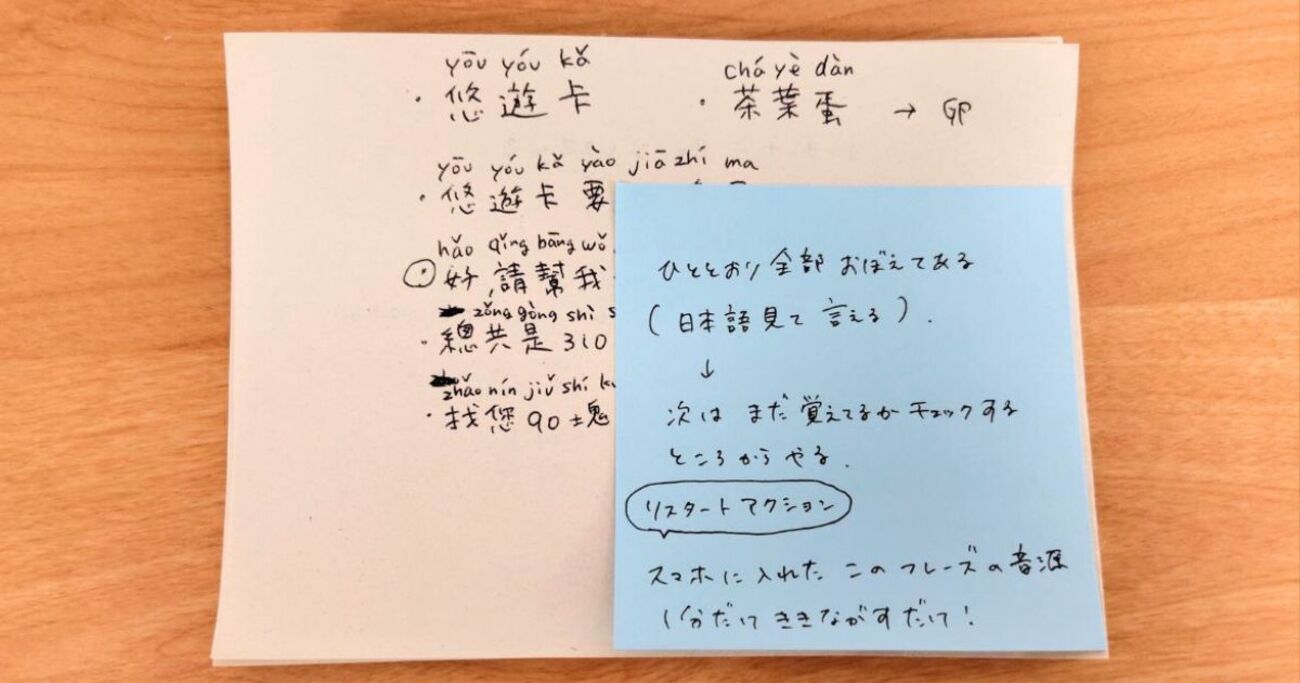 yōu yóu kǎ
・悠遊卡
chá yè dàn
・茶葉蛋 → 卵
yōu yóu kǎ yào jiā zhí ma
・悠遊卡要
hǎo qǐng bāng wǒ
・好,請幫我
zǒng gòng shì s
・總共是310
zhǎo nín jiǔ shí k
・找您90塊
ひととおり全部おぼえてある
(日本語見て言える).
↓
次はまだ覚えてるかチェックする
ところからやる.
リスタートアクション
スマホに入れたこのフレーズの音源
1分だけききながすだけ!